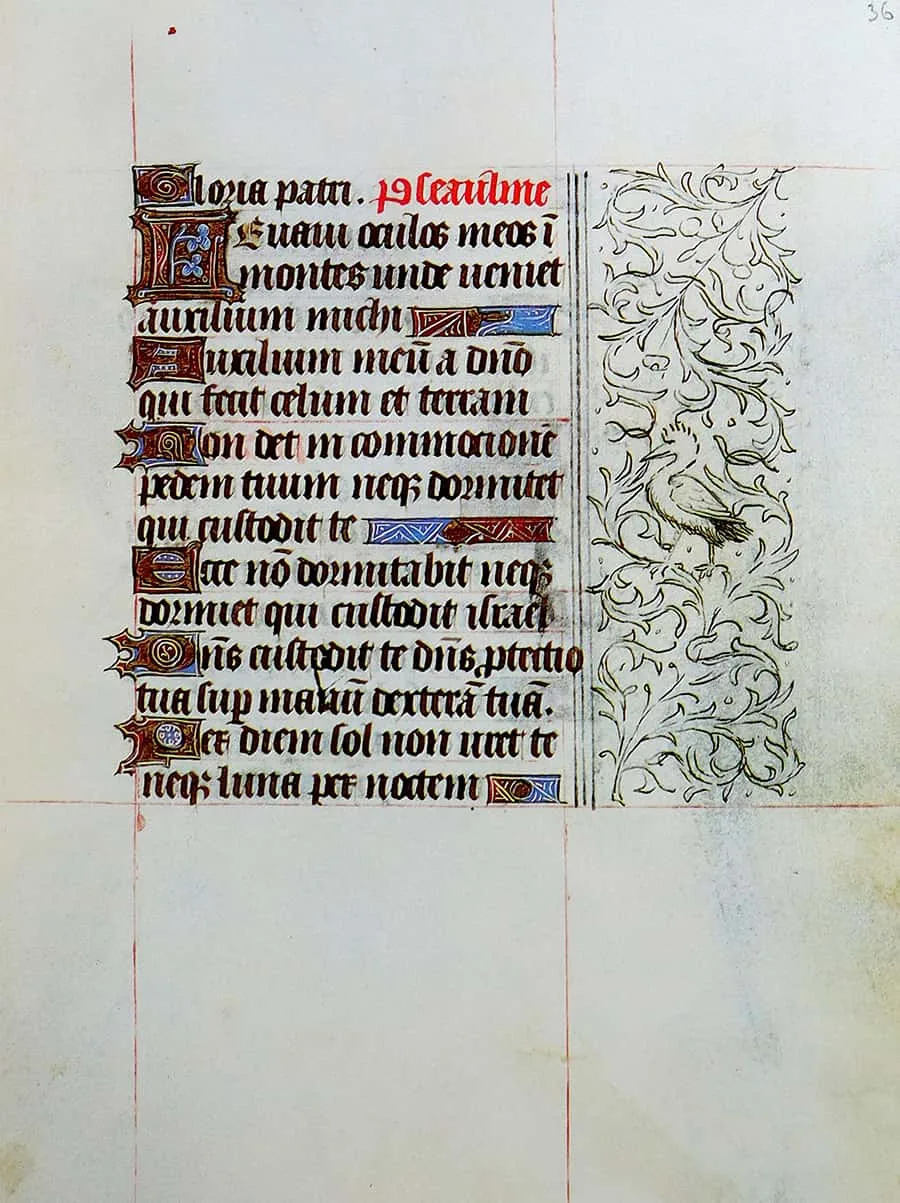 36
Gloria patri. pseaulme
LEuaui oculos meos ī
montes unde ueniet
auxilium michi
Auxilium meū a dnō
qui fecit celum et terram
Non det in commocionē
pedem tuum neqꝫ dormitet
qui custodit te
Ecce nō dormitabit neqꝫ
dormiet qui custodit israel
Dn̄s custodit te dn̄s ꝓtectio
tua suꝑ manū dexterā tuā.
Per diem sol non uret te
neqꝫ luna per noctem